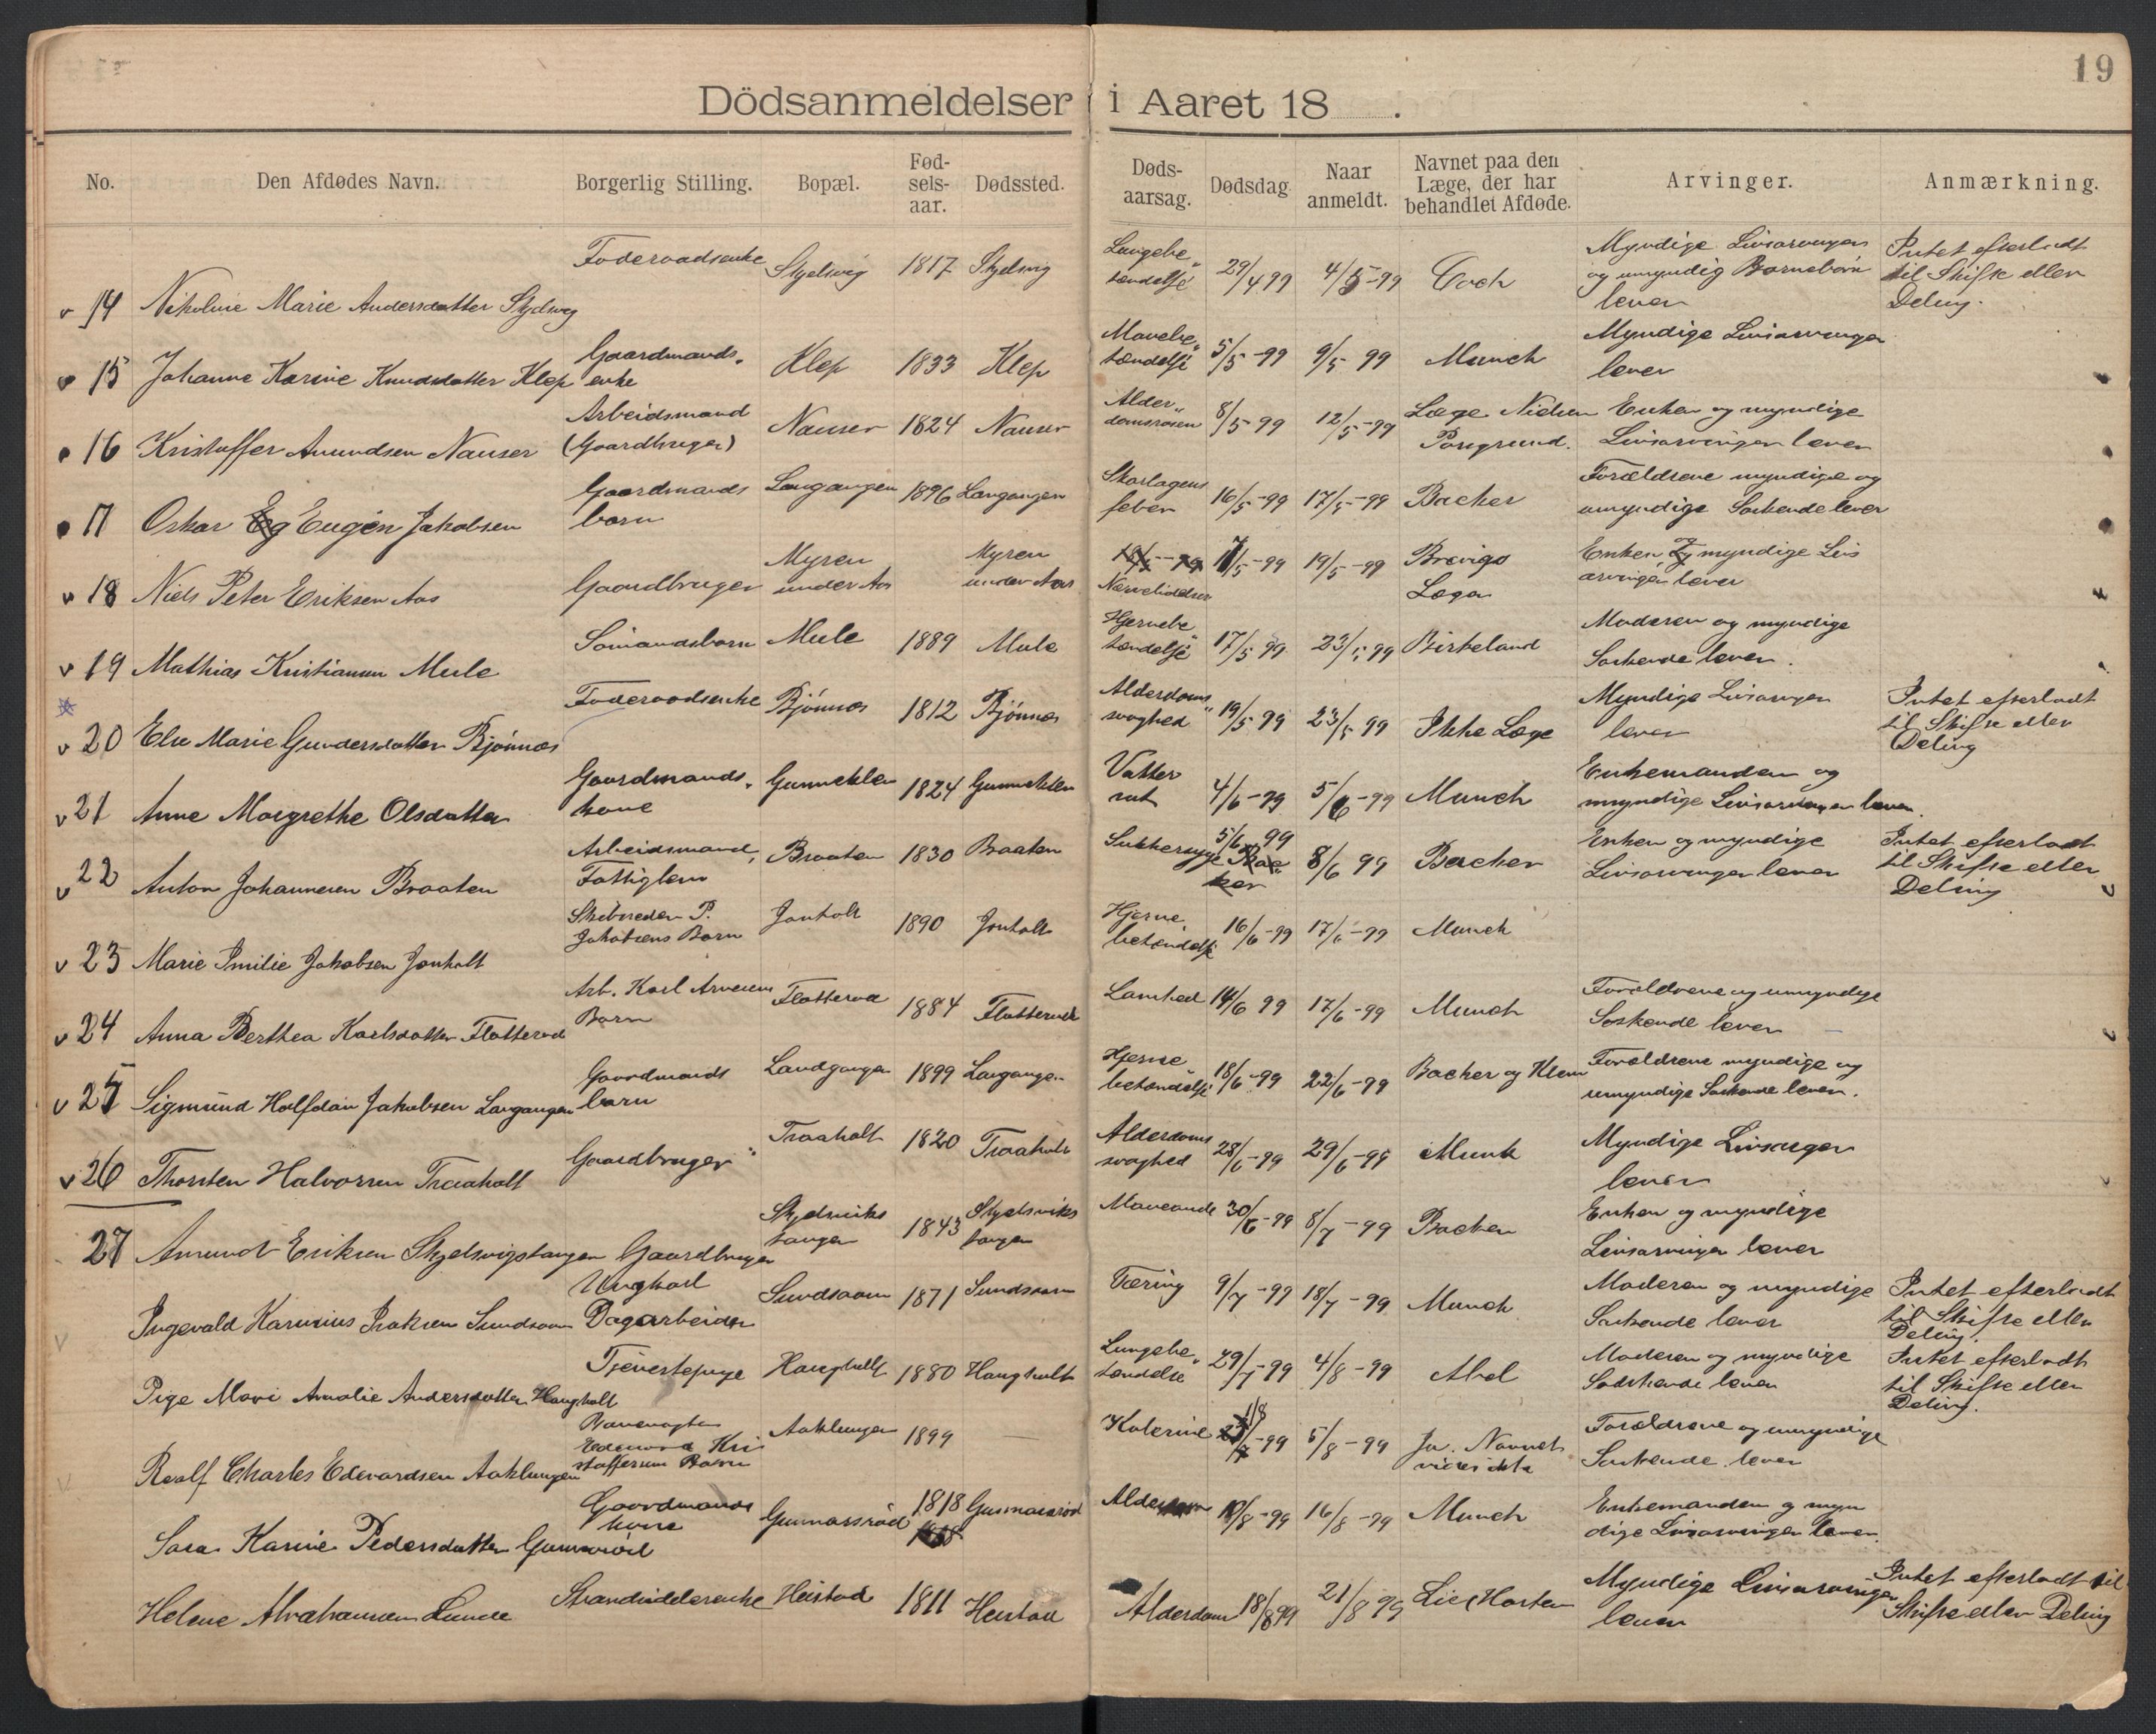 19
Dödsanmeldelser i Aaret 18 .
No. Den Afdødes Navn. Borgerlig Stilling. Bopæl. Fødselsaar. Dødssted. Dødsaarsag. Dødsdag. Naar anmeldt. Navnet paa den Læge, der har behandlet Afdøde. Arvinger. Anmærkning.
14 Nikoline Marie Andersdatter Skjelsvig Foderaadsenke Skjelsvig 1817 Skjelsvig Lungebetændelse 29/4 99 4/5-99 Myndige Livsarvinger og umyndig Barnebarn lever Intet efterladt til Skifte eller Deling.
15 Johanne Karine Knudsdatter Klep Gaardmandsenke Klep 1833 Klep Mavebetændelse 5/5-99 9/5 99 Munch Myndige Livsarvinger lever
16 Kristoffer Amundsen Nauser Arbeidsmand (Gaardbruger) Nauser 1824 Nauser Alderdomsrosen 8/5 99 12/5-99 Læge Nielsen Porsgrund. Enken og myndige Livsarvinger lever
17 Oskar Eugén Jakobsen Gaardmands barn Langangen 1896 Langangen Skarlagensfeber 16/5-99 17/5-99 Backer Forældrene myndige og umyndige Søskende lever
18 Niels Peter Eriksen Aas Gaardbruger Myren under Aas Myren under Aas Nervelidelser 17/5-99 19/5-99 Brevigs Læger Enken myndige Livsarvinger lever
19 Mathias Kristiansen Mule Sömandsbarn Mule 1889 Mule Hjernebetændelse 17/5 99 23/5 99 Birkeland Moderen og myndige Søskende lever.
20 Else Marie Gundersdatter Bjönnes Foderaadsenke Bjönnes 1812 Bjönnes Alderdomssvaghed 19/5 99 23/5 99 Ikke Læge Myndige Livsarvinger lever Intet efterladt til Skifte eller Deling
21 Anne Margrethe Olsdatter Gaardmandskone Gunneklev 1824 Gunneklev Vattersot 4/6-99 5/6-99 Munch Enkemanden og myndige Livsarvinger lever.
22 Anton Johannesen Braaten Arbeidsmand, Fattiglem Braaten 1830 Braaten Sukkersyge 5/6 99 8/6 99 Backer Enken og myndige Livsarvinger lever Intet efterladt til Skifte eller Deling
23 Marie Emilie Jakobsen Jonholt Skibsreder P. Jakobsens Barn Jonholt 1890 Jonholt Hjernebetændelse 16/6-99 17/6-99 Munch
24 Anna Berthea Karlsdatter Flatterød Arb. Karl Barn 1884 Lamhed 14/6 99 17/6-99 Munch Forældrene og umyndige Søskende lever
25 Sigmund Halfdan Jakobsen Langangen Gaardmands barn Landgangen 1899 Langangen Hjernebetændelse 18/6-99 22/6-99 Backer og Forældrene myndige og umyndige Søskende lever.
26 Thorsten Halvorsen Traaholt Gaardbruger Traaholt 1820 Traaholt Alderdomssvaghed 28/6-99 29/6-99 Munk Myndige Livsarvinger lever
27 Amund Eriksen Skjelsvigstangen Gaardbruger Skjelsvikstangen 1843 Skjelsvikstangen Maveonde 30/6-99 8/7-99 Backer Enken og myndige Livsarvinger lever
Ingevald Isaksen Sundsaasen Ungkarl Dagarbeider Sundsaasen 1871 Sundsaasen Tæring 9/7-99 18/7-99 Munch Moderen og myndige Søskende lever Intet efterladt til Skifte eller Deling.
Pige Mari Amalie Andersdatter Haugholt Tjenestepige Haugholt 1880 Haugholt Lungebetændelse 29/7-99 4/8-99 Abel Moderen og myndige Sødskende lever Intet efterladt til Skifte eller Deling.
Roalf Charles Edevardsen Aaklungen Banevogter Edevard Kristoffersens Barn Aaklungen 1899 — Kolerine 1/8 -99 5/8-99 Ja. Navnet vides ikke Forældrene og umyndige Søskende lever
Sara Karine Pedersdatter Gunnarsröd Gaardmands kone Gunnarsröd 1818 Gunnarsröd Alderdom 10/8-99 16/8-99 Munch Enkemanden og myndige Livsarvinger lever.
Helene Abrahamsen Lunde Strandsidderenke Heistad 1811 Heistad Alderdom 18/8 99 21/8 99 Lie, Horten Myndige Livsarvinger lever Intet efterladt til Skifte eller Deling